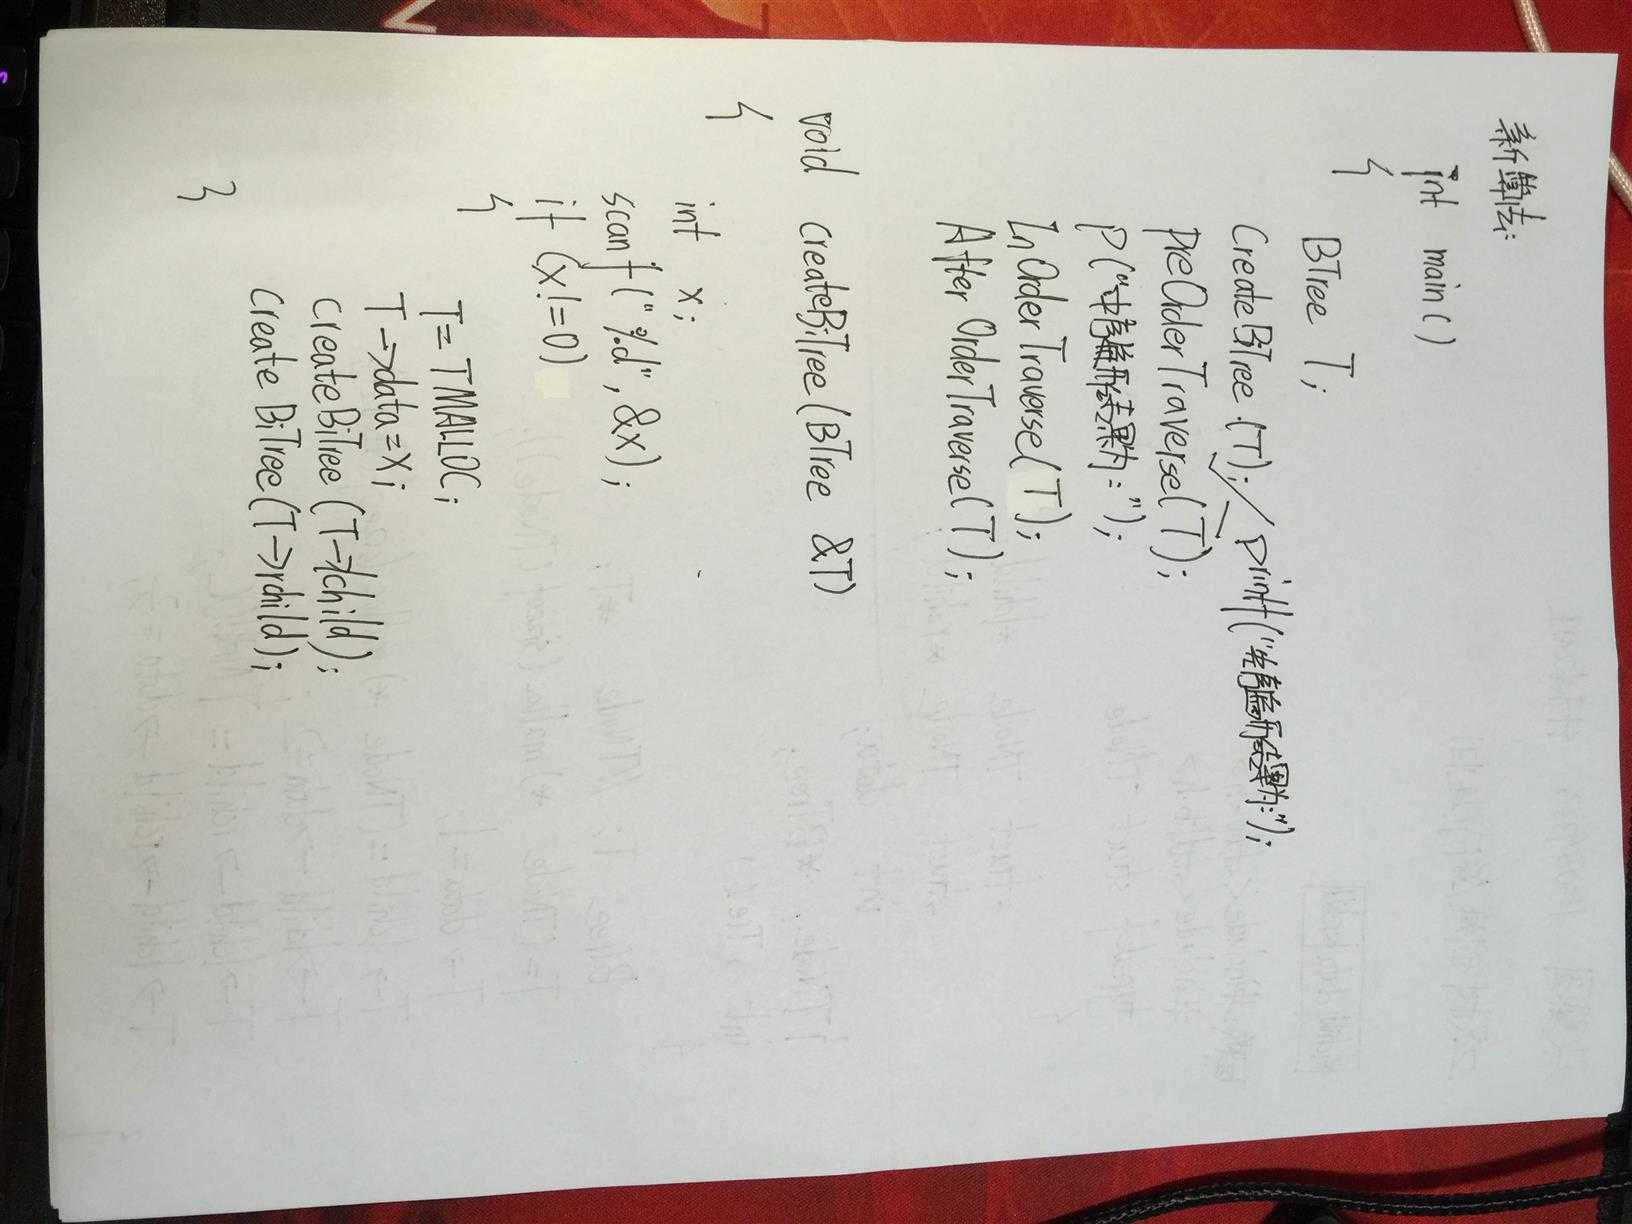 新算法:
int main()
{
BTree T;
CreateBiTree(T); printf("先序遍历结果为:");
PreOrderTraverse(T);
P("中序遍历结果为:");
InOrderTraverse(T);
After OrderTraverse(T);
void CreateBiTree(BTree &T)
{
int x;
scanf("%d", &x);
if (x!=0)
{
T=TMALLOC;
T->data=x;
CreateBiTree(T->lchild);
Create BiTree(T->rchild);
}